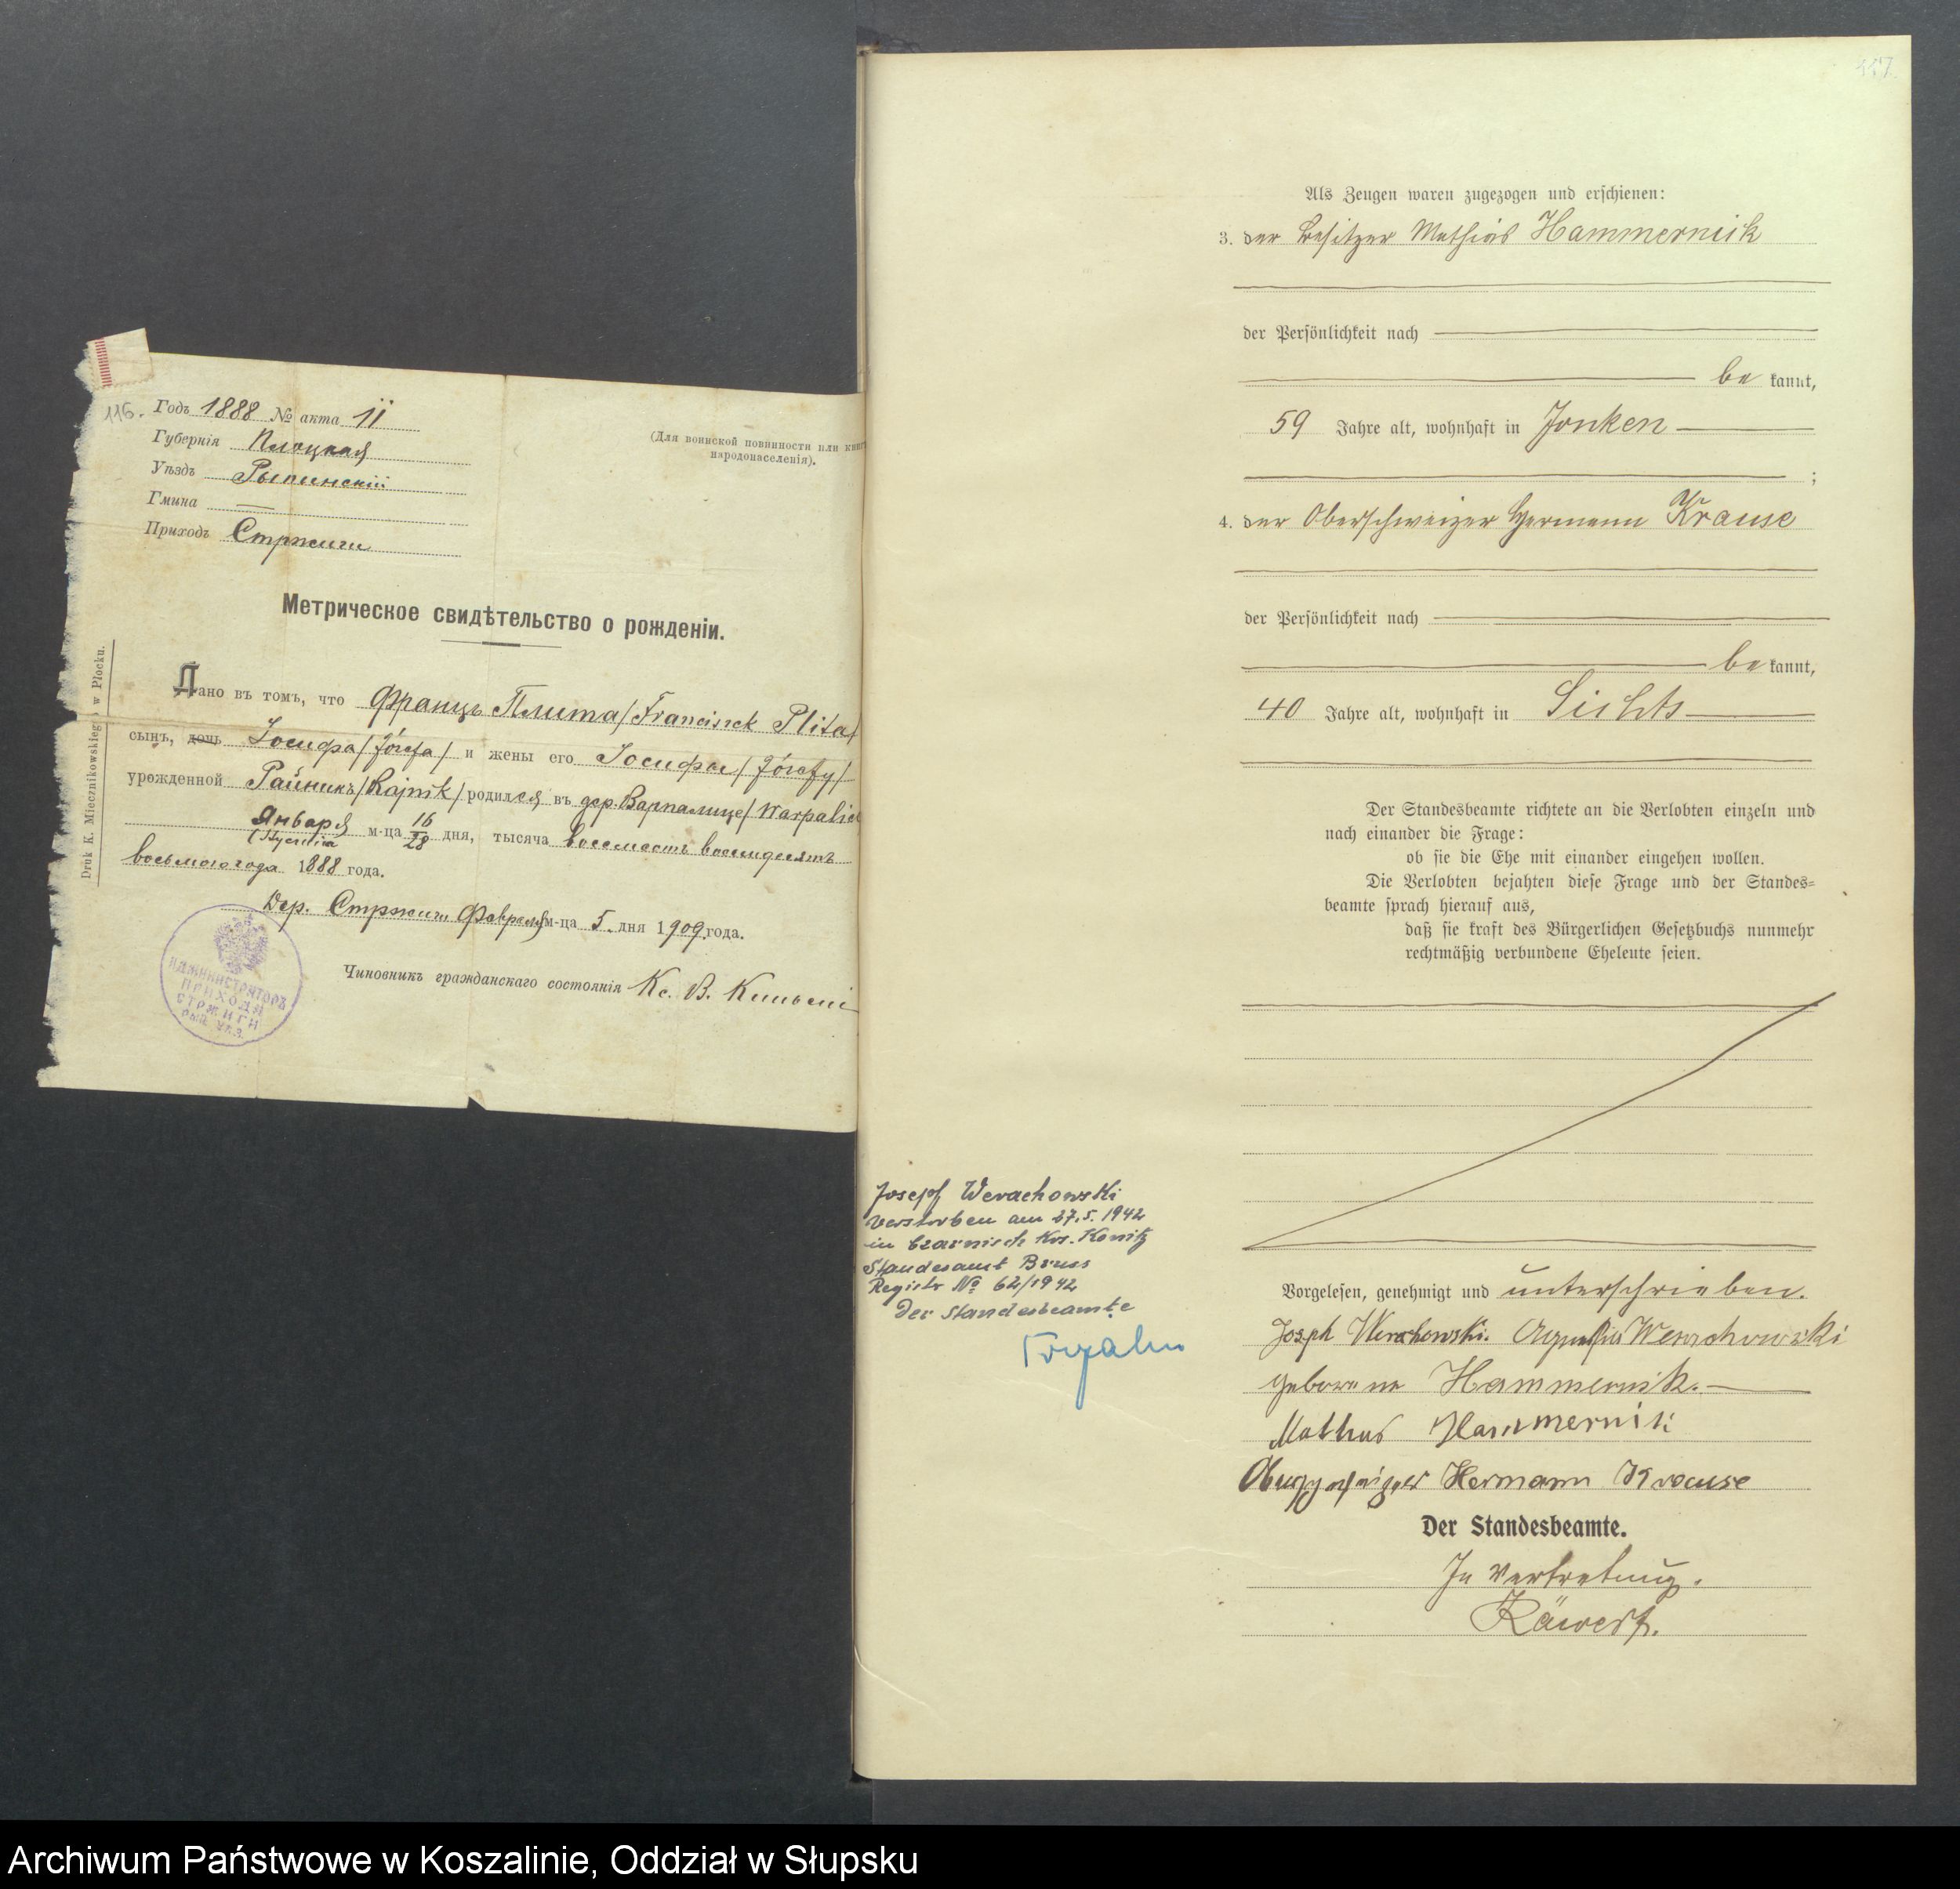 116.
Годъ 1888 № акта 11
Губернія Плоцкая
Уѣздъ Рыпинскій
Гмина
Приходъ Стржиги
(Для воинской повинности или книгъ
народонаселенія).
Метрическое свидѣтельство о рожденіи.
Дано въ томъ, что Францъ Плита /Franciszek Plita/
сынъ, дочь Іосифа /Józefa/ и жены его Іосифы /Józefy/
урожденной Райникъ /Rajnik/ родился въ дер. Варпалице /Warpalice
Января м-ца 16/28 дня, тысяча восемьсотъ восемьдесятъ
(Stycznia
восьмого года 1888 года.
Дер. Стржиги Февраля м-ца 5 дня 1909 года.
Чиновникъ гражданскаго состоянія Кс. В.
АДМИНИСТРАТОРЪ
ПРИХОДА
СТРЖИГИ
РЫП. УѢЗ.
Druk K. Miecznikowskiego w Płocku.
117.
Als Zeugen waren zugezogen und erschienen:
3. der Besitzer Mathias Hammernik
der Persönlichkeit nach
be kannt,
59 Jahre alt, wohnhaft in Jonken
;
4. der Oberschweizer Hermann Krause
der Persönlichkeit nach
be kannt,
40 Jahre alt, wohnhaft in Sichts
Der Standesbeamte richtete an die Verlobten einzeln und
nach einander die Frage:
ob sie die Ehe mit einander eingehen wollen.
Die Verlobten bejahten diese Frage und der Standes=
beamte sprach hierauf aus,
daß sie kraft des Bürgerlichen Gesetzbuchs nunmehr
rechtmäßig verbundene Eheleute seien.
Josef Werachowski
verstorben am 27.5.1942
in Czarnisch Krs. Konitz
Standesamt Bruss
Registr No 62/1942
Der Standesbeamte
Vorgelesen, genehmigt und unterschrieben.
Joseph Werachowski. Werachowski
geborene Hammernik.
Mathias Hammernik
Oberschweizer Hermann Krause
Der Standesbeamte.
In Vertretung.
Archiwum Państwowe w Koszalinie, Oddział w Słupsku